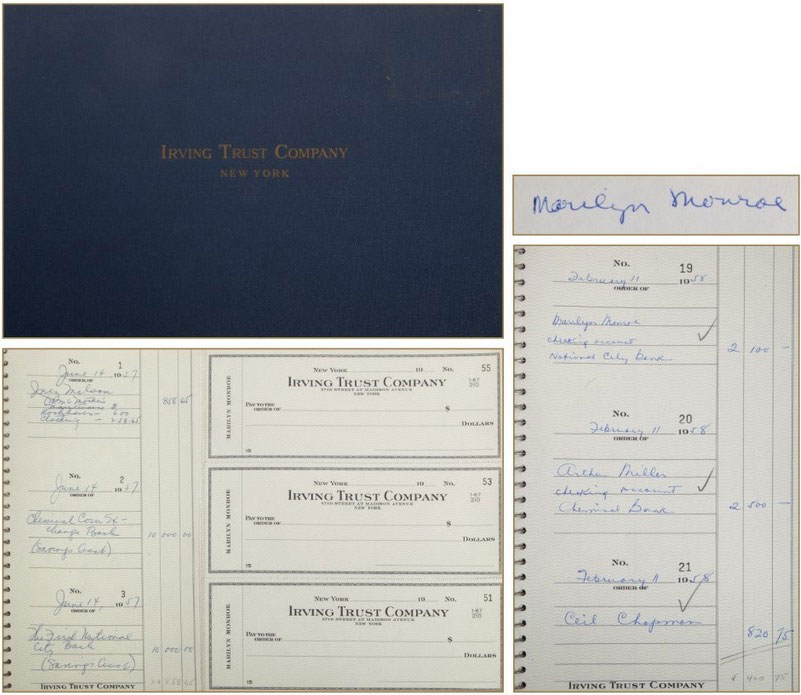 IRVING TRUST COMPANY
NEW YORK
Marilyn Monroe
No. 1
June 14 1957
ORDER OF
Inez Melson
600
Clothing - 258.65
858 65
No. 2
June 14 1957
ORDER OF
Chemical Corn Ex-
change Bank
(Savings Acct)
10 000 00
No. 3
June 14, 1957
ORDER OF
The First National
City Bank
(Savings Acct)
10 000 00
IRVING TRUST COMPANY
MARILYN MONROE
NEW YORK 19 No. 55
IRVING TRUST COMPANY
57TH STREET AT MADISON AVENUE
NEW YORK
1-67
210
PAY TO THE
ORDER OF $
DOLLARS
15
MARILYN MONROE
NEW YORK 19 No. 53
IRVING TRUST COMPANY
57TH STREET AT MADISON AVENUE
NEW YORK
1-67
210
PAY TO THE
ORDER OF $
DOLLARS
15
MARILYN MONROE
NEW YORK 19 No. 51
IRVING TRUST COMPANY
57TH STREET AT MADISON AVENUE
NEW YORK
1-67
210
PAY TO THE
ORDER OF $
DOLLARS
15
No. 19
February 11 1958
ORDER OF
Marilyn Monroe
checking account
National City Bank
2 100 -
No. 20
February 11 1958
ORDER OF
Arthur Miller
checking account
Chemical Bank
2 500 -
No. 21
February 11 1958
ORDER OF
Ceil Chapman
820 75
IRVING TRUST COMPANY